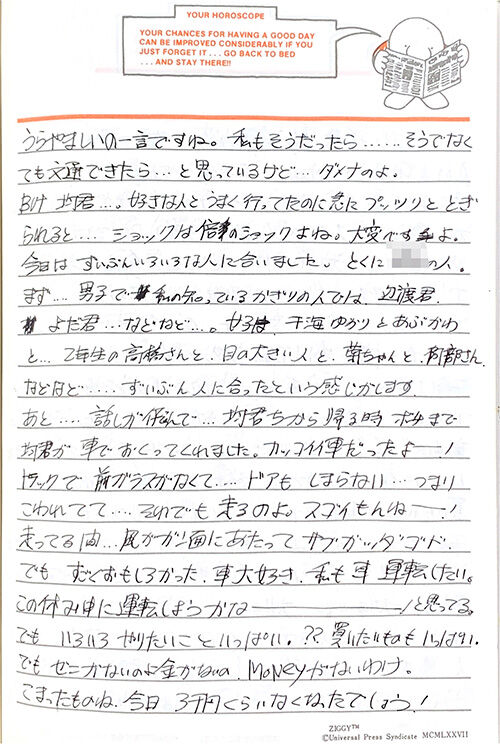 YOUR HOROSCOPE
YOUR CHANCES FOR HAVING A GOOD DAY
CAN BE IMPROVED CONSIDERABLY IF YOU
JUST FORGET IT ... GO BACK TO BED
... AND STAY THERE!!
うらやましいの一言ですね。私もそうだったら……そうでなく
ても文通できたら…と思っているけど…ダメナのよ。
均君…。好きな人とうまく行ってたのに急にプッツリととぎ
られると…ショックは倍のショックよね。大変ですよ。
今日はずいぶんいろいろな人に合いました。とくに の人。
まず…男子で私の知っているかぎりの人では、辺渡君、
よだ君…などなど…。女子は、千海ゆかりとあぶかわ
と…2年生の高橋さんと、目の大きい人と、菊ちゃんと、阿部さん、
などなど……ずいぶん人に合ったという感じがします
あと…話しが飛んで…均君ちから帰る時ボクまで
均君が車でおくってくれました。カッコイイ車だったよー!
トラックで前ガラスがなくて…ドアもしまらない…つまり
こわれてて…それでも走るのよ。スゴイもんねー!
走ってる間…風がガン面にあたってサブガッタゴド。
でもすごくおもしろかった。車大好き、私も車運転したい。
この休み中に運転しようかなー!と思ってる。
でもいろいろやりたいこといっぱい。??買いたいものもいっぱい。
でもゼニがないのよ金がないの。Moneyがないわけ。
こまったものね。今日3千円くらいなくなったでしょう!
ZIGGY™
©Universal Press Syndicate MCMLXXVII